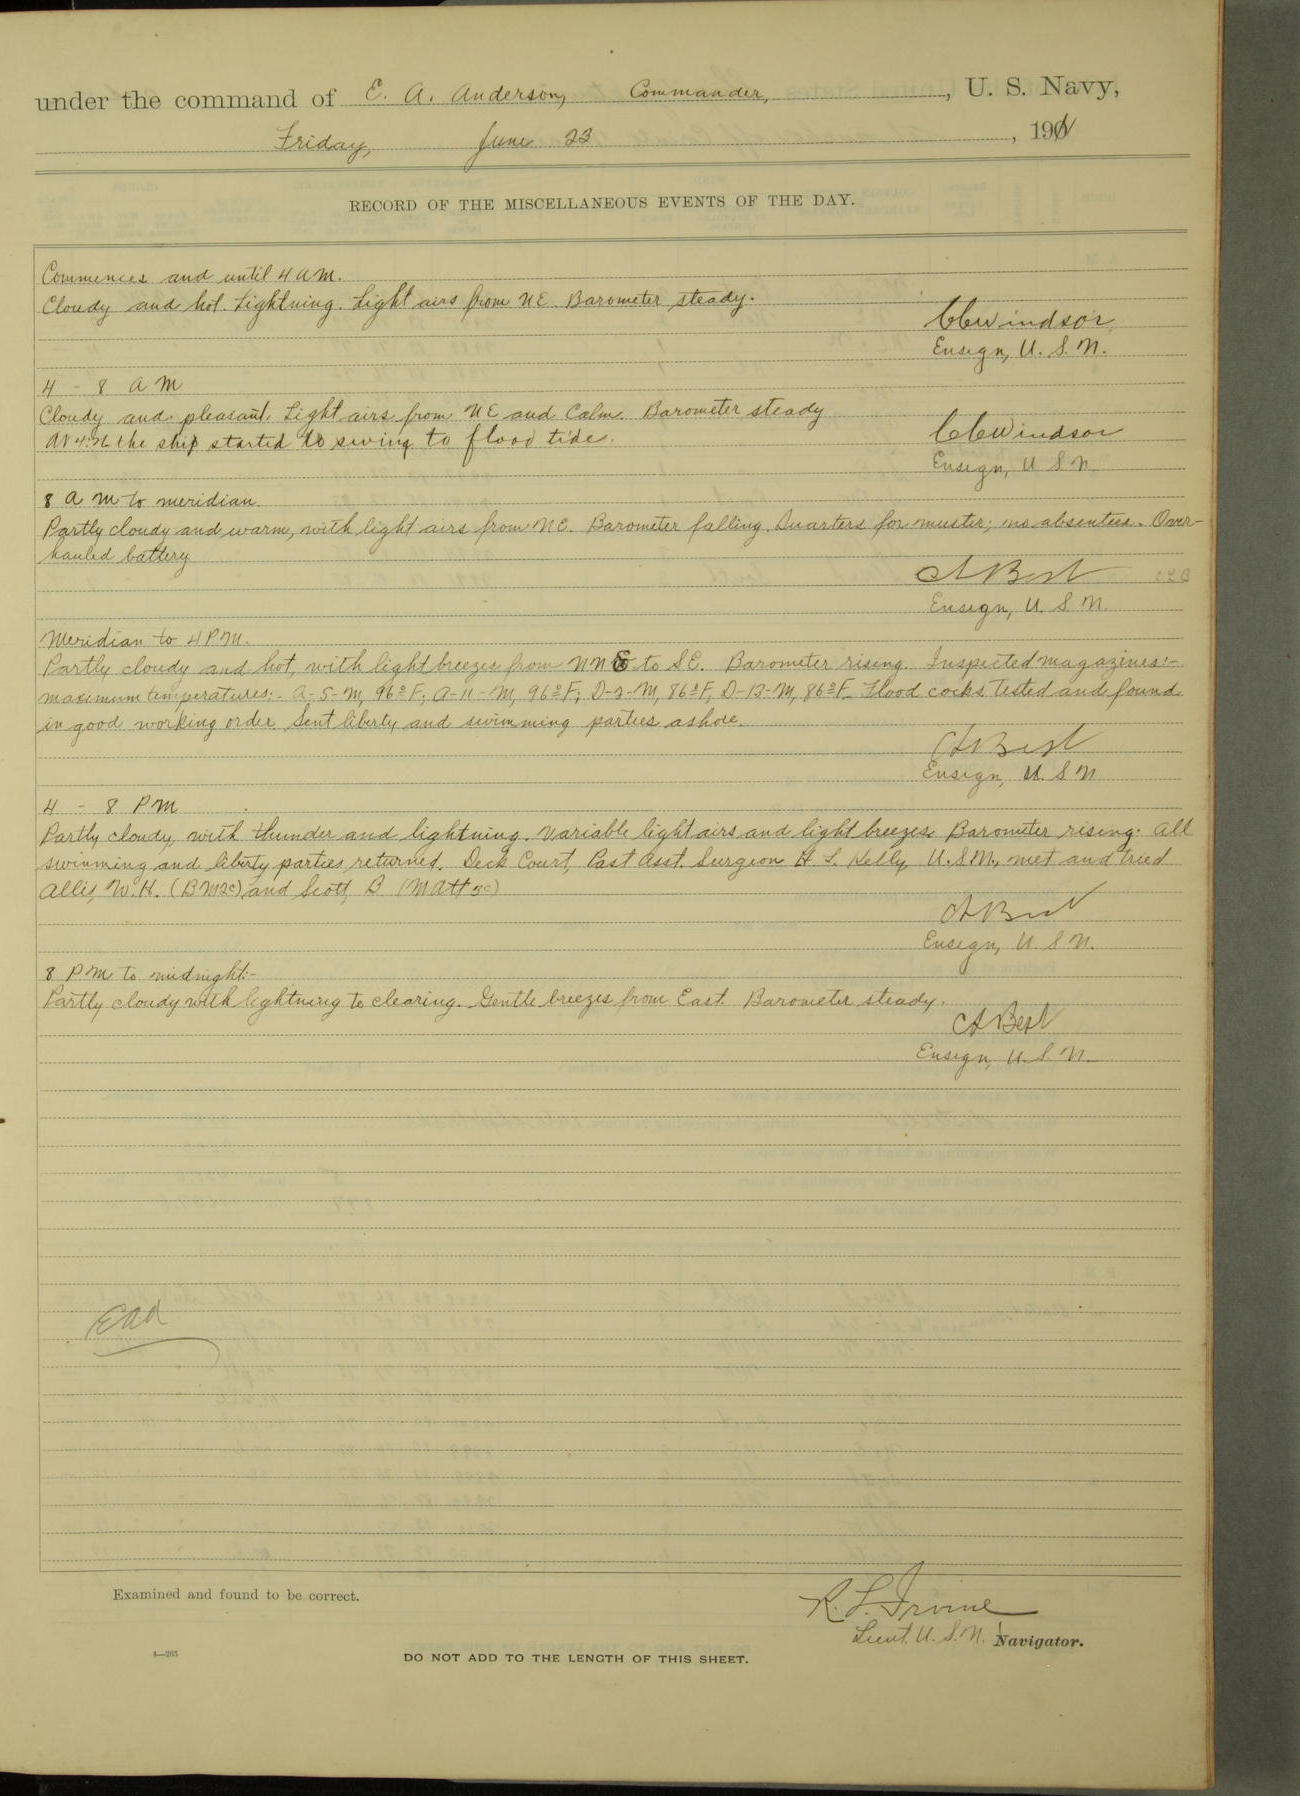 under the command of E. A. Anderson, Commander, , U. S. Navy,
Friday, June 23 , 1911
RECORD OF THE MISCELLANEOUS EVENTS OF THE DAY.
Commences and until 4 AM.
Cloudy and hot. Lightning. Light airs from NE. Barometer steady.
CCWindsor
Ensign, U. S. N.
4 - 8 AM
Cloudy and pleasant. Light airs from NE and Calm. Barometer steady
the ship started to swing to flood tide.
CCWindsor
Ensign, U S N.
8 AM to meridian.
Partly cloudy and warm, with light airs from NE. Barometer falling. Quarters for muster; no absentees. Over-
hauled battery
CLBest CLB
Ensign, U. S. N.
Meridian to 4 PM.
Partly cloudy and hot, with light breezes from NNE to SE. Barometer rising. Inspected magazines:-
maximum temperatures:- A-5-M, 96° F; A-11-M, 96° F; D-2-M, 86° F, D-13-M, 86° F. Flood cocks tested and found
in good working order. Sent liberty and swimming parties ashore.
CLBest
Ensign, U. S N
4 - 8 PM
Partly cloudy, with thunder and lightning. Variable light airs and light breezes. Barometer rising. All
swimming and liberty parties returned. Deck Court, Past Asst. Surgeon H. L. Kelly, U.S.N., met and tried
Allis, W. H. (BM2c), and Scott, B (MAtt 3c)
CLBest
Ensign, U. S N.
8 PM to midnight:-
Partly cloudy with lightning to clearing. Gentle breezes from East. Barometer steady.
CLBest
Ensign, U. S. N.
EAA
Examined and found to be correct.
R. L. Irvine
Lieut. U. S. N. Navigator.
DO NOT ADD TO THE LENGTH OF THIS SHEET.